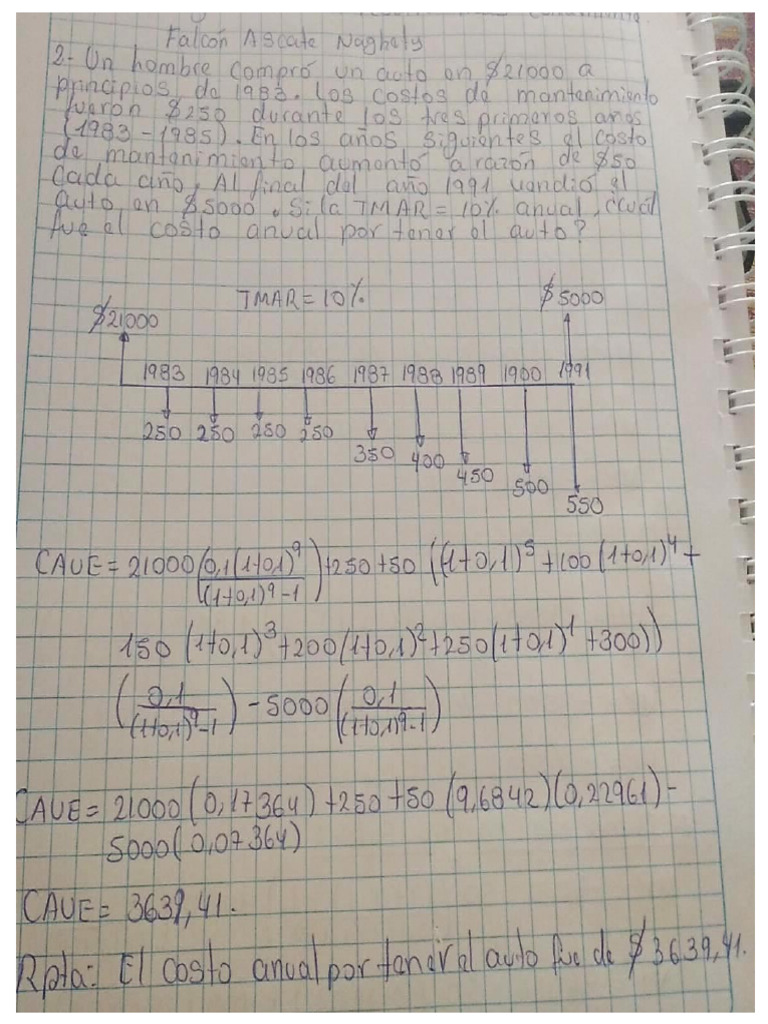 Falcón Ascate Naghely
2.- Un hombre compró un auto en $21000 a
principios de 1983. Los costos de mantenimiento
fueron $250 durante los tres primeros años
(1983-1985). En los años siguientes el costo
de mantenimiento aumentó a razón de $50
cada año. Al final del año 1991 vendió el
auto en $5000. Si la TMAR = 10% anual, cuál
fue el costo anual por tener el auto?
TMAR = 10%
$5000
$21000
1983 1984 1985 1986 1987 1988 1989 1900 1991
250 250 250 250
350 400 450 500 550
CAUE = 21000(0,1(1+0,1)^9/((1+0,1)^9-1)) + 250 + 50 ((1+0,1)^5 + 100(1+0,1)^4 +
150 (1+0,1)^3 + 200(1+0,1)^2 + 250(1+0,1)^1 + 300))
(0,1/((1+0,1)^9-1)) - 5000 (0,1/((1+0,1)^9-1))
CAUE = 21000(0,17364) + 250 + 50 (9,6842)(0,22961) -
5000(0,07364)
CAUE = 3639,41.
Rpta: El costo anual por tener el auto fue de $3639,41.